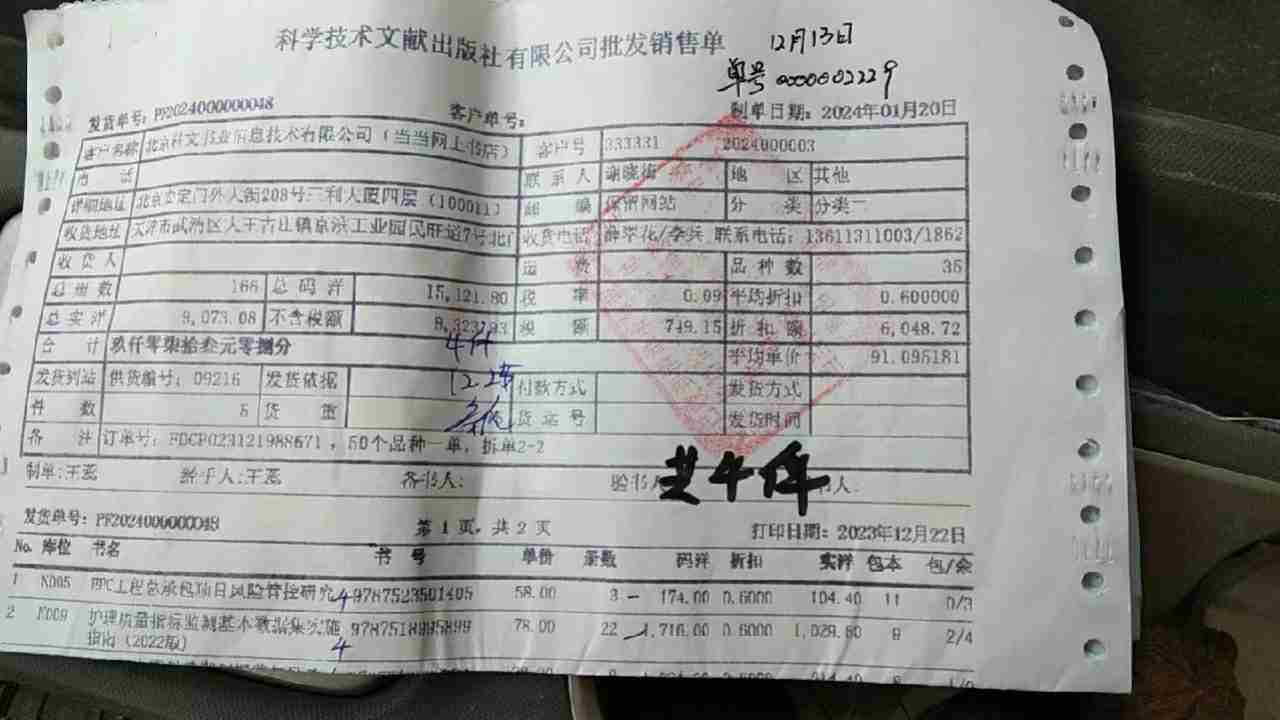 科学技术文献出版社有限公司批发销售单
12月13日
单号 0000002229
发货单号：PF2024000000048 客户单号： 制单日期：2024年01月20日
客户名称 北京科文书业信息技术有限公司（当当网上书店） 客户号 333331 2024000003
电话 联系人 谢晓梅 地区 其他
详细地址 北京安定门外大街208号三利大厦四层（100011） 邮编 保留网站 分类 分类一
收货地址 天津市武清区大王古庄镇京滨工业园民旺道7号北门 收货电话 联系电话：13611311003/1862
收货人 运费 品种数 35
总册数 166 总码洋 15,121.80 税率 0.09 平均折扣 0.600000
总实洋 9,073.08 不含税额 8,323.93 税额 749.15 折扣额 6,048.72
合计 玖仟零柒拾叁元零捌分 4件 平均单价 91.095181
发货到站 供货编号：09216 发货依据 付款方式 发货方式
件数 5 货重 货运号 发货时间
备注 订单号：FDCP023121988671，50个品种一单，拆单2-2
制单：王蕊 经手人：王蕊 各书人： 验书人 共4件 书人：
发货单号：PF2024000000048 第 1 页，共 2 页 打印日期：2023年12月22日
No. 库位 书名 书号 单价 册数 码洋 折扣 实洋 包本 包/余
1 N005 EPC工程总承包项目风险管控研究 4 9787523501405 58.00 3 174.00 0.6000 104.40 11 0/3
2 护理质量指标监测基本数据集实施 9787518995899 78.00 22 1,716.00 0.6000 1,029.60 9 2/4
指南（2022版） 4